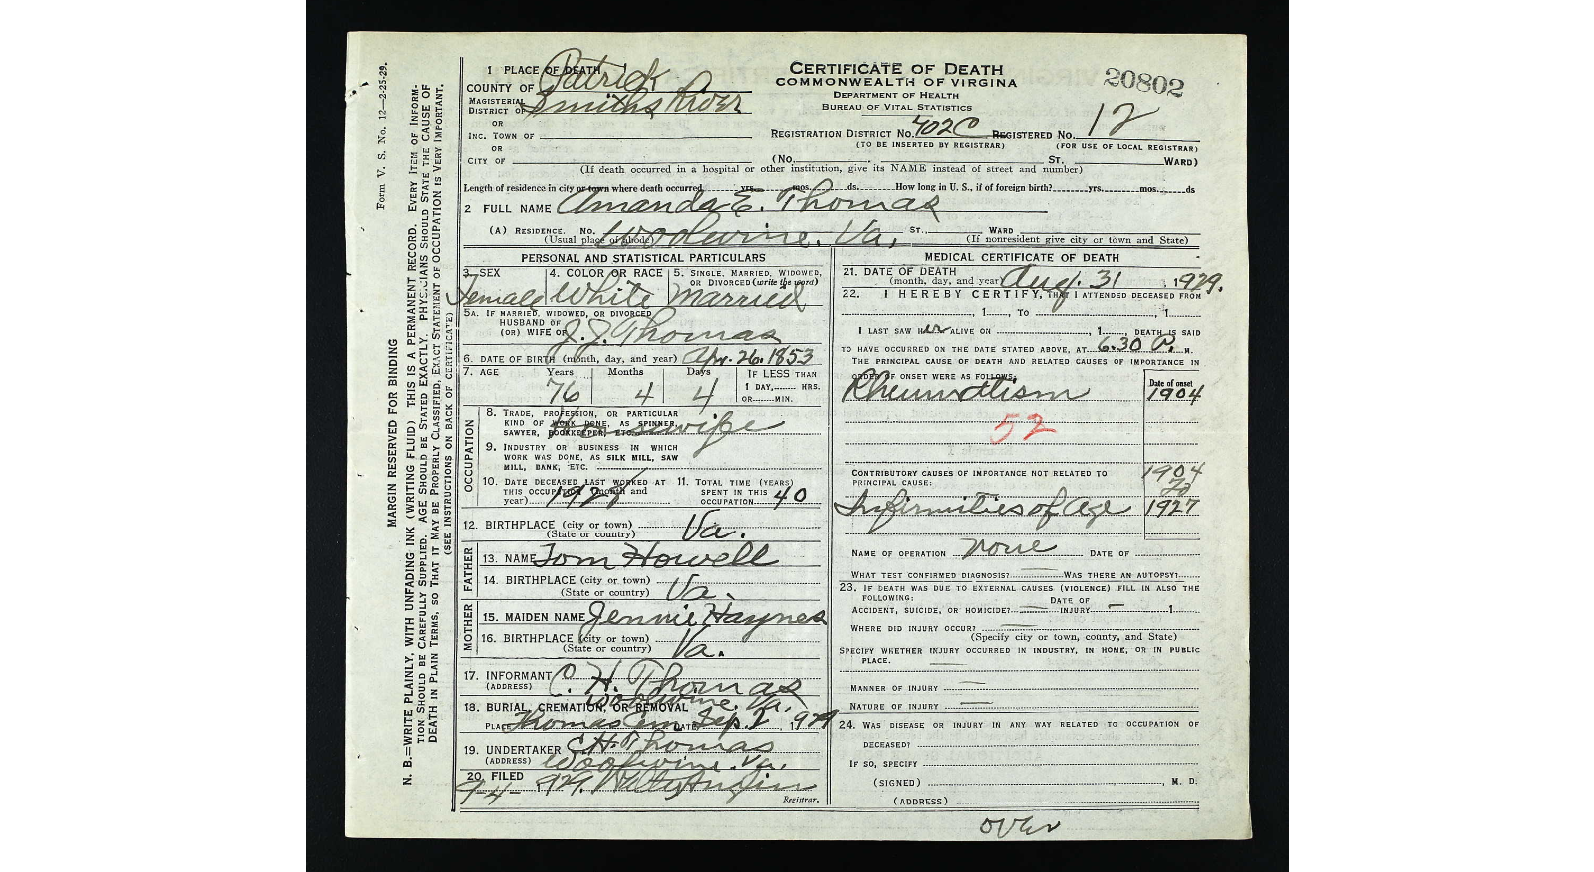 Form V. S. No. 12—2-25-29.
MARGIN RESERVED FOR BINDING
N. B.—WRITE PLAINLY, WITH UNFADING INK (WRITING FLUID) THIS IS A PERMANENT RECORD. EVERY ITEM OF INFORM-
TION SHOULD BE CAREFULLY SUPPLIED. AGE SHOULD BE STATED EXACTLY. PHYSICIANS SHOULD STATE THE CAUSE OF
DEATH IN PLAIN TERMS, SO THAT IT MAY BE PROPERLY CLASSIFIED. EXACT STATEMENT OF OCCUPATION IS VERY IMPORTANT.
(SEE INSTRUCTIONS ON BACK OF CERTIFICATE)
CERTIFICATE OF DEATH
COMMONWEALTH OF VIRGINA
DEPARTMENT OF HEALTH
BUREAU OF VITAL STATISTICS
20802
1 PLACE OF DEATH
COUNTY OF Patrick
MAGISTERIAL DISTRICT OF Smiths River
OR
INC. TOWN OF
OR
CITY OF
REGISTRATION DISTRICT NO. 402C REGISTERED NO. 12
(TO BE INSERTED BY REGISTRAR) (FOR USE OF LOCAL REGISTRAR)
(No. ST. WARD)
(If death occurred in a hospital or other institution, give its NAME instead of street and number)
Length of residence in city or town where death occurred yrs. mos. ds. How long in U. S., if of foreign birth? yrs. mos. ds
2 FULL NAME Amanda E. Thomas
(A) RESIDENCE. NO. Woolwine. Va. ST., WARD
(Usual place of abode) (If nonresident give city or town and State)
PERSONAL AND STATISTICAL PARTICULARS
3. SEX Female
4. COLOR OR RACE White
5. SINGLE, MARRIED, WIDOWED, OR DIVORCED (write the word) Married
5A. IF MARRIED, WIDOWED, OR DIVORCED
HUSBAND OF
(OR) WIFE OF J. J. Thomas
6. DATE OF BIRTH (month, day, and year) Apr. 26. 1853
7. AGE Years Months Days IF LESS THAN
76 4 4 1 DAY, HRS.
OR MIN.
OCCUPATION
8. TRADE, PROFESSION, OR PARTICULAR
KIND OF WORK DONE, AS SPINNER,
SAWYER, BOOKKEEPER, ETC. Housewife
9. INDUSTRY OR BUSINESS IN WHICH
WORK WAS DONE, AS SILK MILL, SAW
MILL, BANK, ETC.
10. DATE DECEASED LAST WORKED AT
THIS OCCUPATION (month and
year)
11. TOTAL TIME (YEARS)
SPENT IN THIS
OCCUPATION 40
12. BIRTHPLACE (city or town)
(State or country) Va.
FATHER
13. NAME Tom Howell
14. BIRTHPLACE (city or town)
(State or country) Va.
MOTHER
15. MAIDEN NAME Jennie Haynes
16. BIRTHPLACE (city or town)
(State or country) Va.
17. INFORMANT C. H. Thomas
(ADDRESS) Woolwine. Va.
18. BURIAL, CREMATION, OR REMOVAL
PLACE Thomas Cem DATE Sep. 2, 1929
19. UNDERTAKER C. H. Thomas
(ADDRESS) Woolwine. Va.
20. FILED 9-4- 1929.
Registrar.
MEDICAL CERTIFICATE OF DEATH
21. DATE OF DEATH
(month, day, and year) Aug. 31, 1929.
22. I HEREBY CERTIFY, THAT I ATTENDED DECEASED FROM
, 1 , TO , 1
I LAST SAW HER ALIVE ON , 1 , DEATH IS SAID
TO HAVE OCCURRED ON THE DATE STATED ABOVE, AT 6.30 P. M.
THE PRINCIPAL CAUSE OF DEATH AND RELATED CAUSES OF IMPORTANCE IN
ORDER OF ONSET WERE AS FOLLOWS: Date of onset
Rheumatism 1904
52
CONTRIBUTORY CAUSES OF IMPORTANCE NOT RELATED TO
PRINCIPAL CAUSE: 1904
To
Infirmities of Age 1927
NAME OF OPERATION None DATE OF
WHAT TEST CONFIRMED DIAGNOSIS? WAS THERE AN AUTOPSY?
23. IF DEATH WAS DUE TO EXTERNAL CAUSES (VIOLENCE) FILL IN ALSO THE
FOLLOWING:
ACCIDENT, SUICIDE, OR HOMICIDE? DATE OF INJURY — 1
WHERE DID INJURY OCCUR?
(Specify city or town, county, and State)
SPECIFY WHETHER INJURY OCCURRED IN INDUSTRY, IN HONE, OR IN PUBLIC
PLACE.
MANNER OF INJURY
NATURE OF INJURY
24. WAS DISEASE OR INJURY IN ANY WAY RELATED TO OCCUPATION OF
DECEASED?
IF SO, SPECIFY
(SIGNED) , M. D.
(ADDRESS)
over